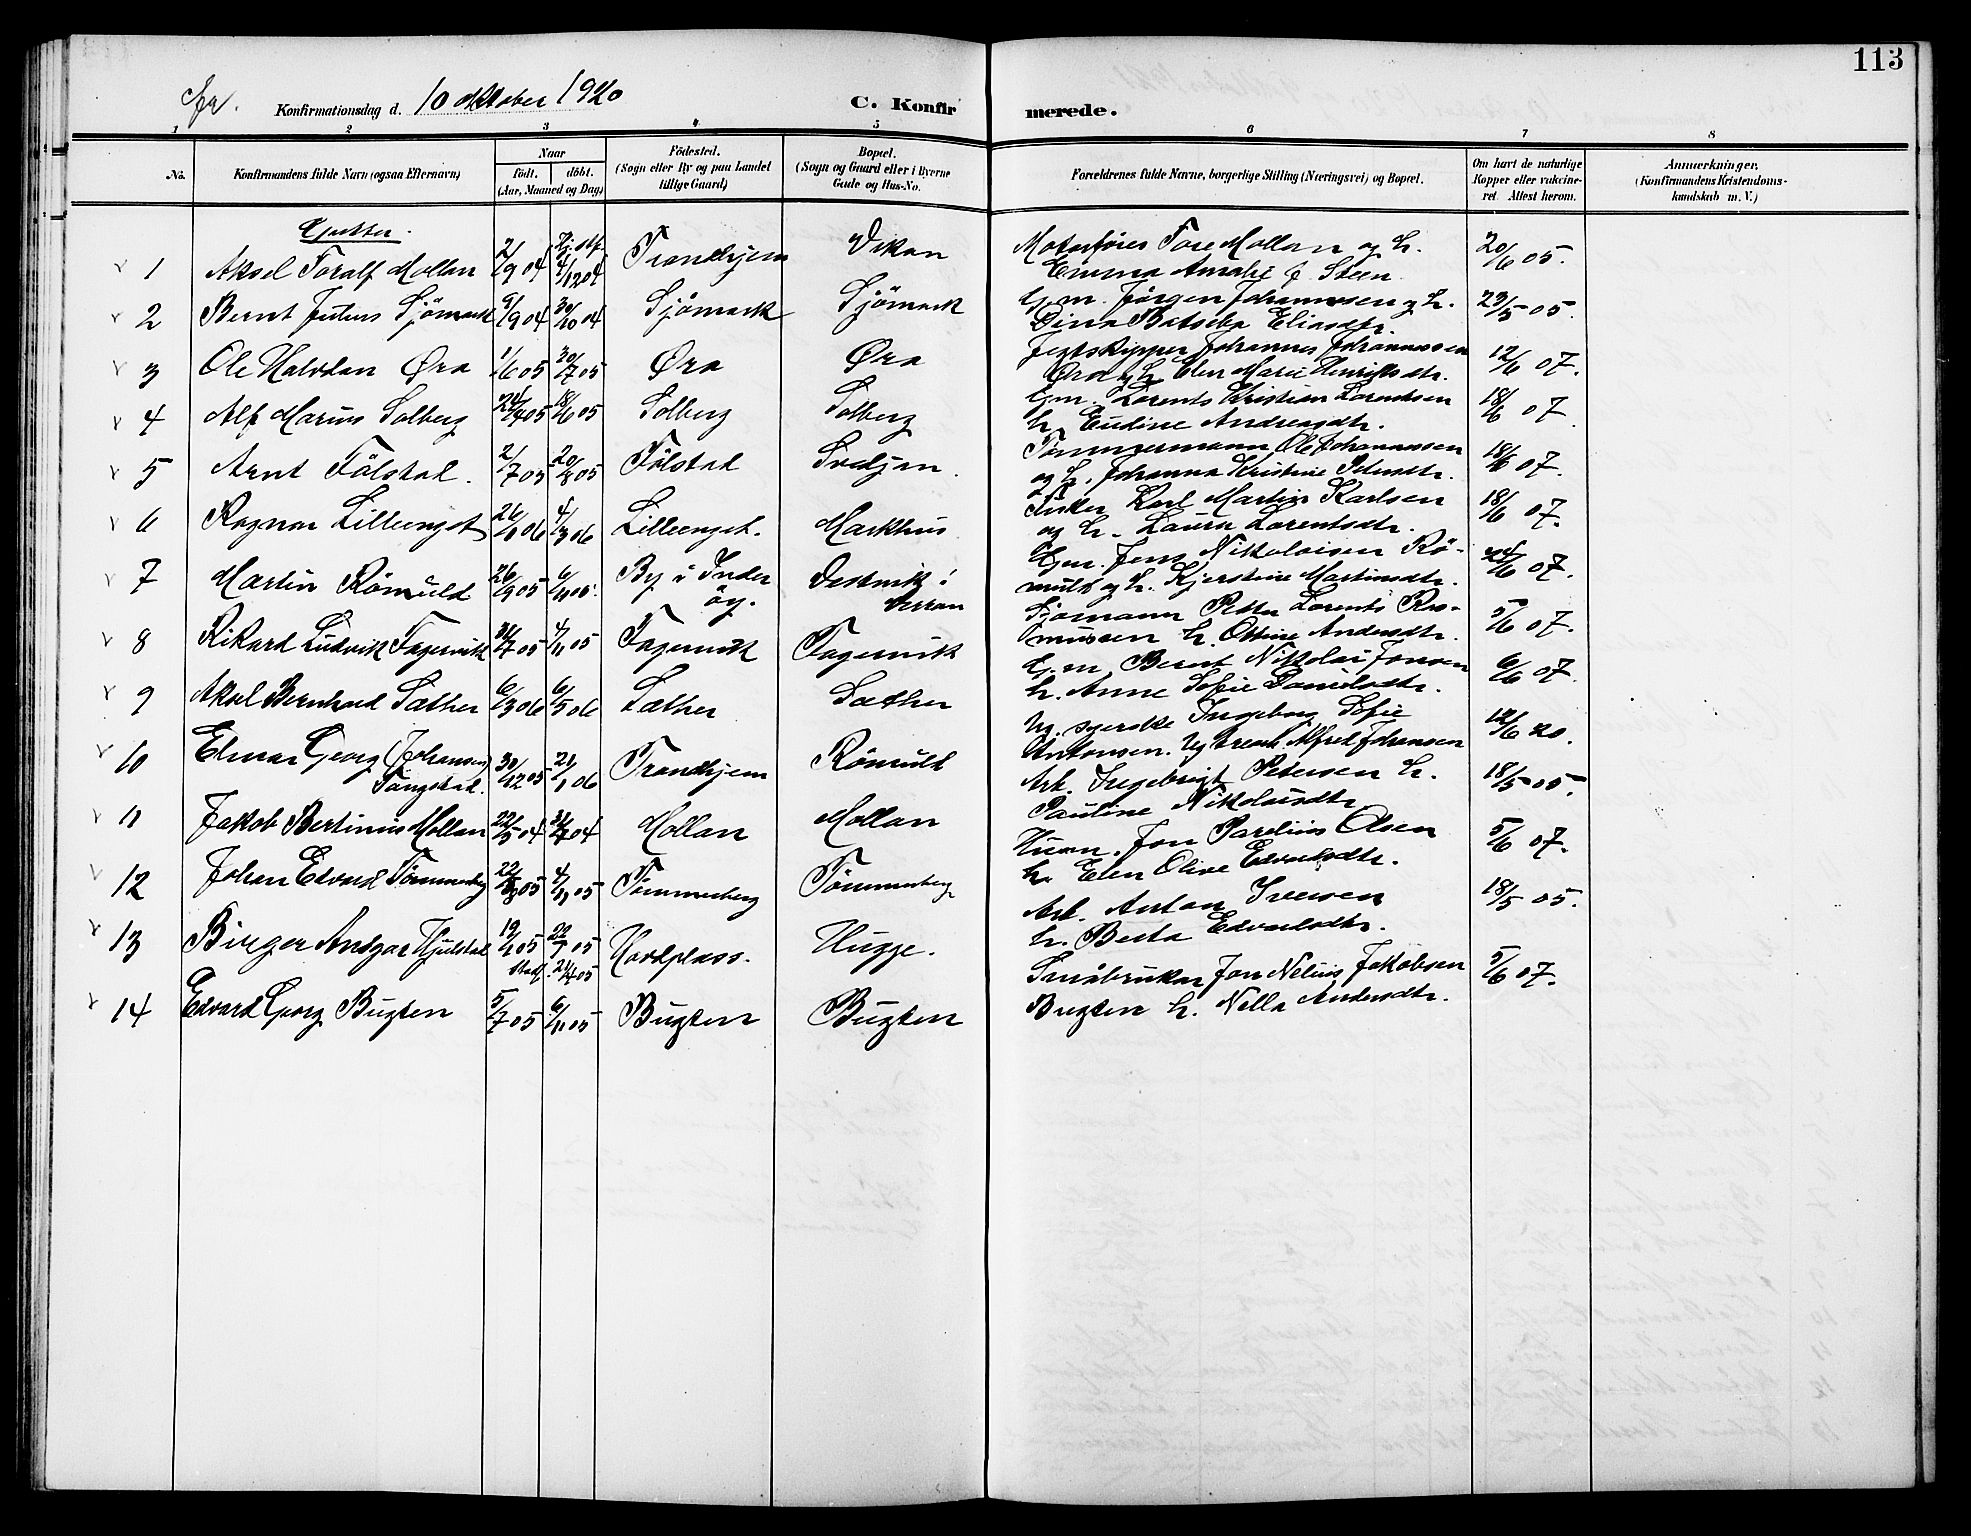 113
Konfirmationsdag d. 10 oktober 1920
C. Konfirmerede.
1 2 3 4 5 6 7 8
No.
Konfirmandens fulde Navn (ogsaa Efternavn)
Naar
født. døbt.
(Aar, Maaned og Dag)
Fødested.
(Sogn eller By og paa Landet
tillige Gaard)
Bopæl.
(Sogn og Gaard eller i Byerne
Gade og Hus-No.
Forældrenes fulde Navne, borgerlige Stilling (Næringsvei) og Bopæl.
Om havt de naturlige
Kopper eller vakcine-
ret. Attest herom.
Anmærkninger.
(Konfirmandens Kristendoms-
kundskab m. V.)
Gutter.
1 Aksel Toralf Mollan 2/9 04 4/12 04 Trondhjem Vikan Motorfører Tore Mollan og h. 20/6 05.
Emma Amalie f. Steen
2 Bernt Julius Sjömark 9/9 04 30/10 04 Sjömark Sjömark Gm. Jørgen Johannesen og h. 23/5 05.
Dina Batseba Eliasdtr.
3 Ole Halvdan Øra 1/6 05 30/7 05 Øra Øra Jegtskipper Johannes Johannessen 12/6 07.
Øra og h. Elen Marie Henriksdtr.
4 Alf Marius Solberg 24/4 05 18/6 05 Solberg Solberg Gm. Lorents Kristian Lorentsen 18/6 07
h. Eudine Andreasdtr.
5 Arnt Fölstad. 2/7 05 20/8 05 Fölstad Svedjan. Tømmermann Ole Johannessen 18/6 07.
og h. Johanna Kristine Petersdtr.
6 Ragnar Lilleenget 26/1 06 4/3 06 Lilleenget. Markhus Fisker Karl Martin Karlsen 18/6 07.
og h. Laura Lorentsdtr.
7 Martin Römuld 26/9 05 6/11 05. By i Inder Vestvik i Gm. Jens Nikolaisen Rö- 24/6 07.
öy. Verran muld og h. Kjerstine Martinsdtr.
8 Rikard Ludvik Fagervik 31/7 05 4/11 05 Fagervik Fagervik Sjømann Petter Lorents Ras- 5/6 07.
mussen h. Ottine Andersdtr.
9 Aksel Bernhard Sæther 6/3 06 6/5 06 Sæther Sæther Gm. Berent Nikolai Jonsen 6/6 07.
h. Anne Sofie Danielsdtr.
10 Elmar Georg (Johansen) 30/12 05 21/1 06 Trondhjem Römuld Ug. syerske Ingeborg Sofie 12/6 20.
Tangstad. Antonsen. Alfred Johansen
11 Jakob Bertinius Mollan 22/5 04 31/7 04 Mollan Mollan Arb. Ingebrigt Petersen h. 18/5 05.
Pauline Nikolaisdtr.
12 Johan Edvard Tømmerberg 05 4/11 05 Tømmerberg Tømmerberg Husm. Jon Parelius Olsen 5/6 07.
h. Elen Olive Edvardsdtr.
13 Birger Ansgar Hjulstad 19/1 05 22/1 05 Hordplass. Hugge. Arb. Anton Iversen 18/5 05.
stadf. 24/4 05 h. Berta Edvardsdtr.
14 Edvard Georg Bugten 5/7 05 6/11 05 Bugten Bugten Småbruker Jon Nelius Jakobsen 5/6 07.
Bugten h. Nella Andersdtr.